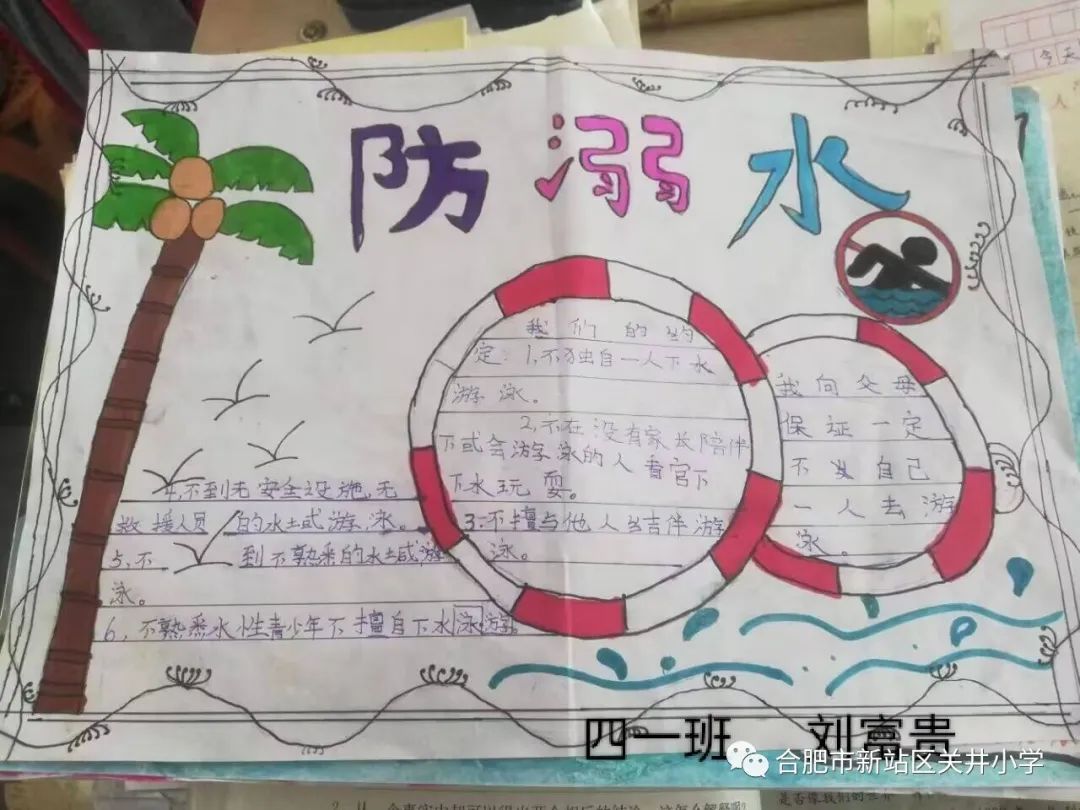 防溺水
我们的约
定:1,不独自一人下水
游泳。
2,不在没有家长陪伴
下或会游泳的人看官下
下水玩耍。
3、不擅与他人结伴游
泳。
4,不到无安全设施,无
救援人员的水域游泳。
5,不到不熟悉的水域游
泳。
6,不熟悉水性青少年不擅自下水泳游
我向父母
保证一定
不
自己
一人去游
泳。
四一班 刘富贵
合肥市新站区关井小学
今天